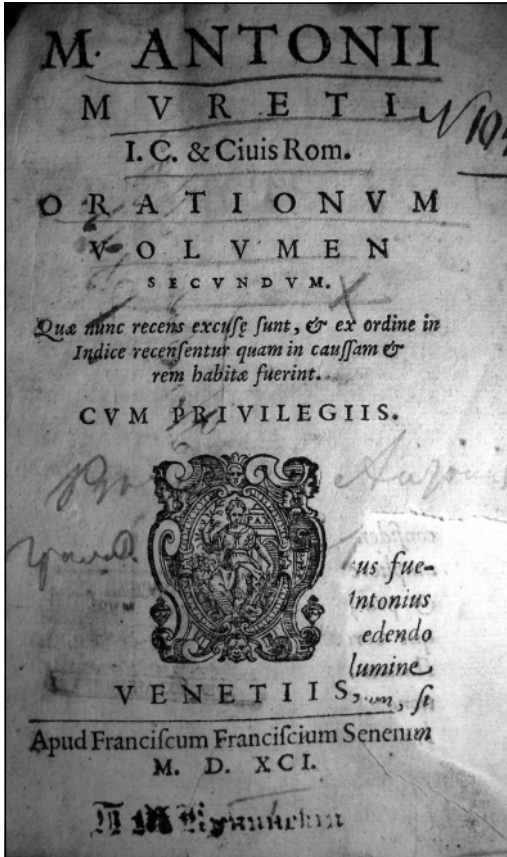 M. ANTONII
MVRETI
I. C. & Ciuis Rom.
ORATIONVM
VOLVMEN
SECVNDVM.
Quæ nunc recens excusę sunt, & ex ordine in
Indice recensentur quam in caussam &
rem habitæ fuerint.
CVM PRIVILEGIIS.
PAX
us fue-
ntonius
edendo
lumine
VENETIIS,
, si
Apud Franciscum Franciscium Senensem
M. D. XCI.